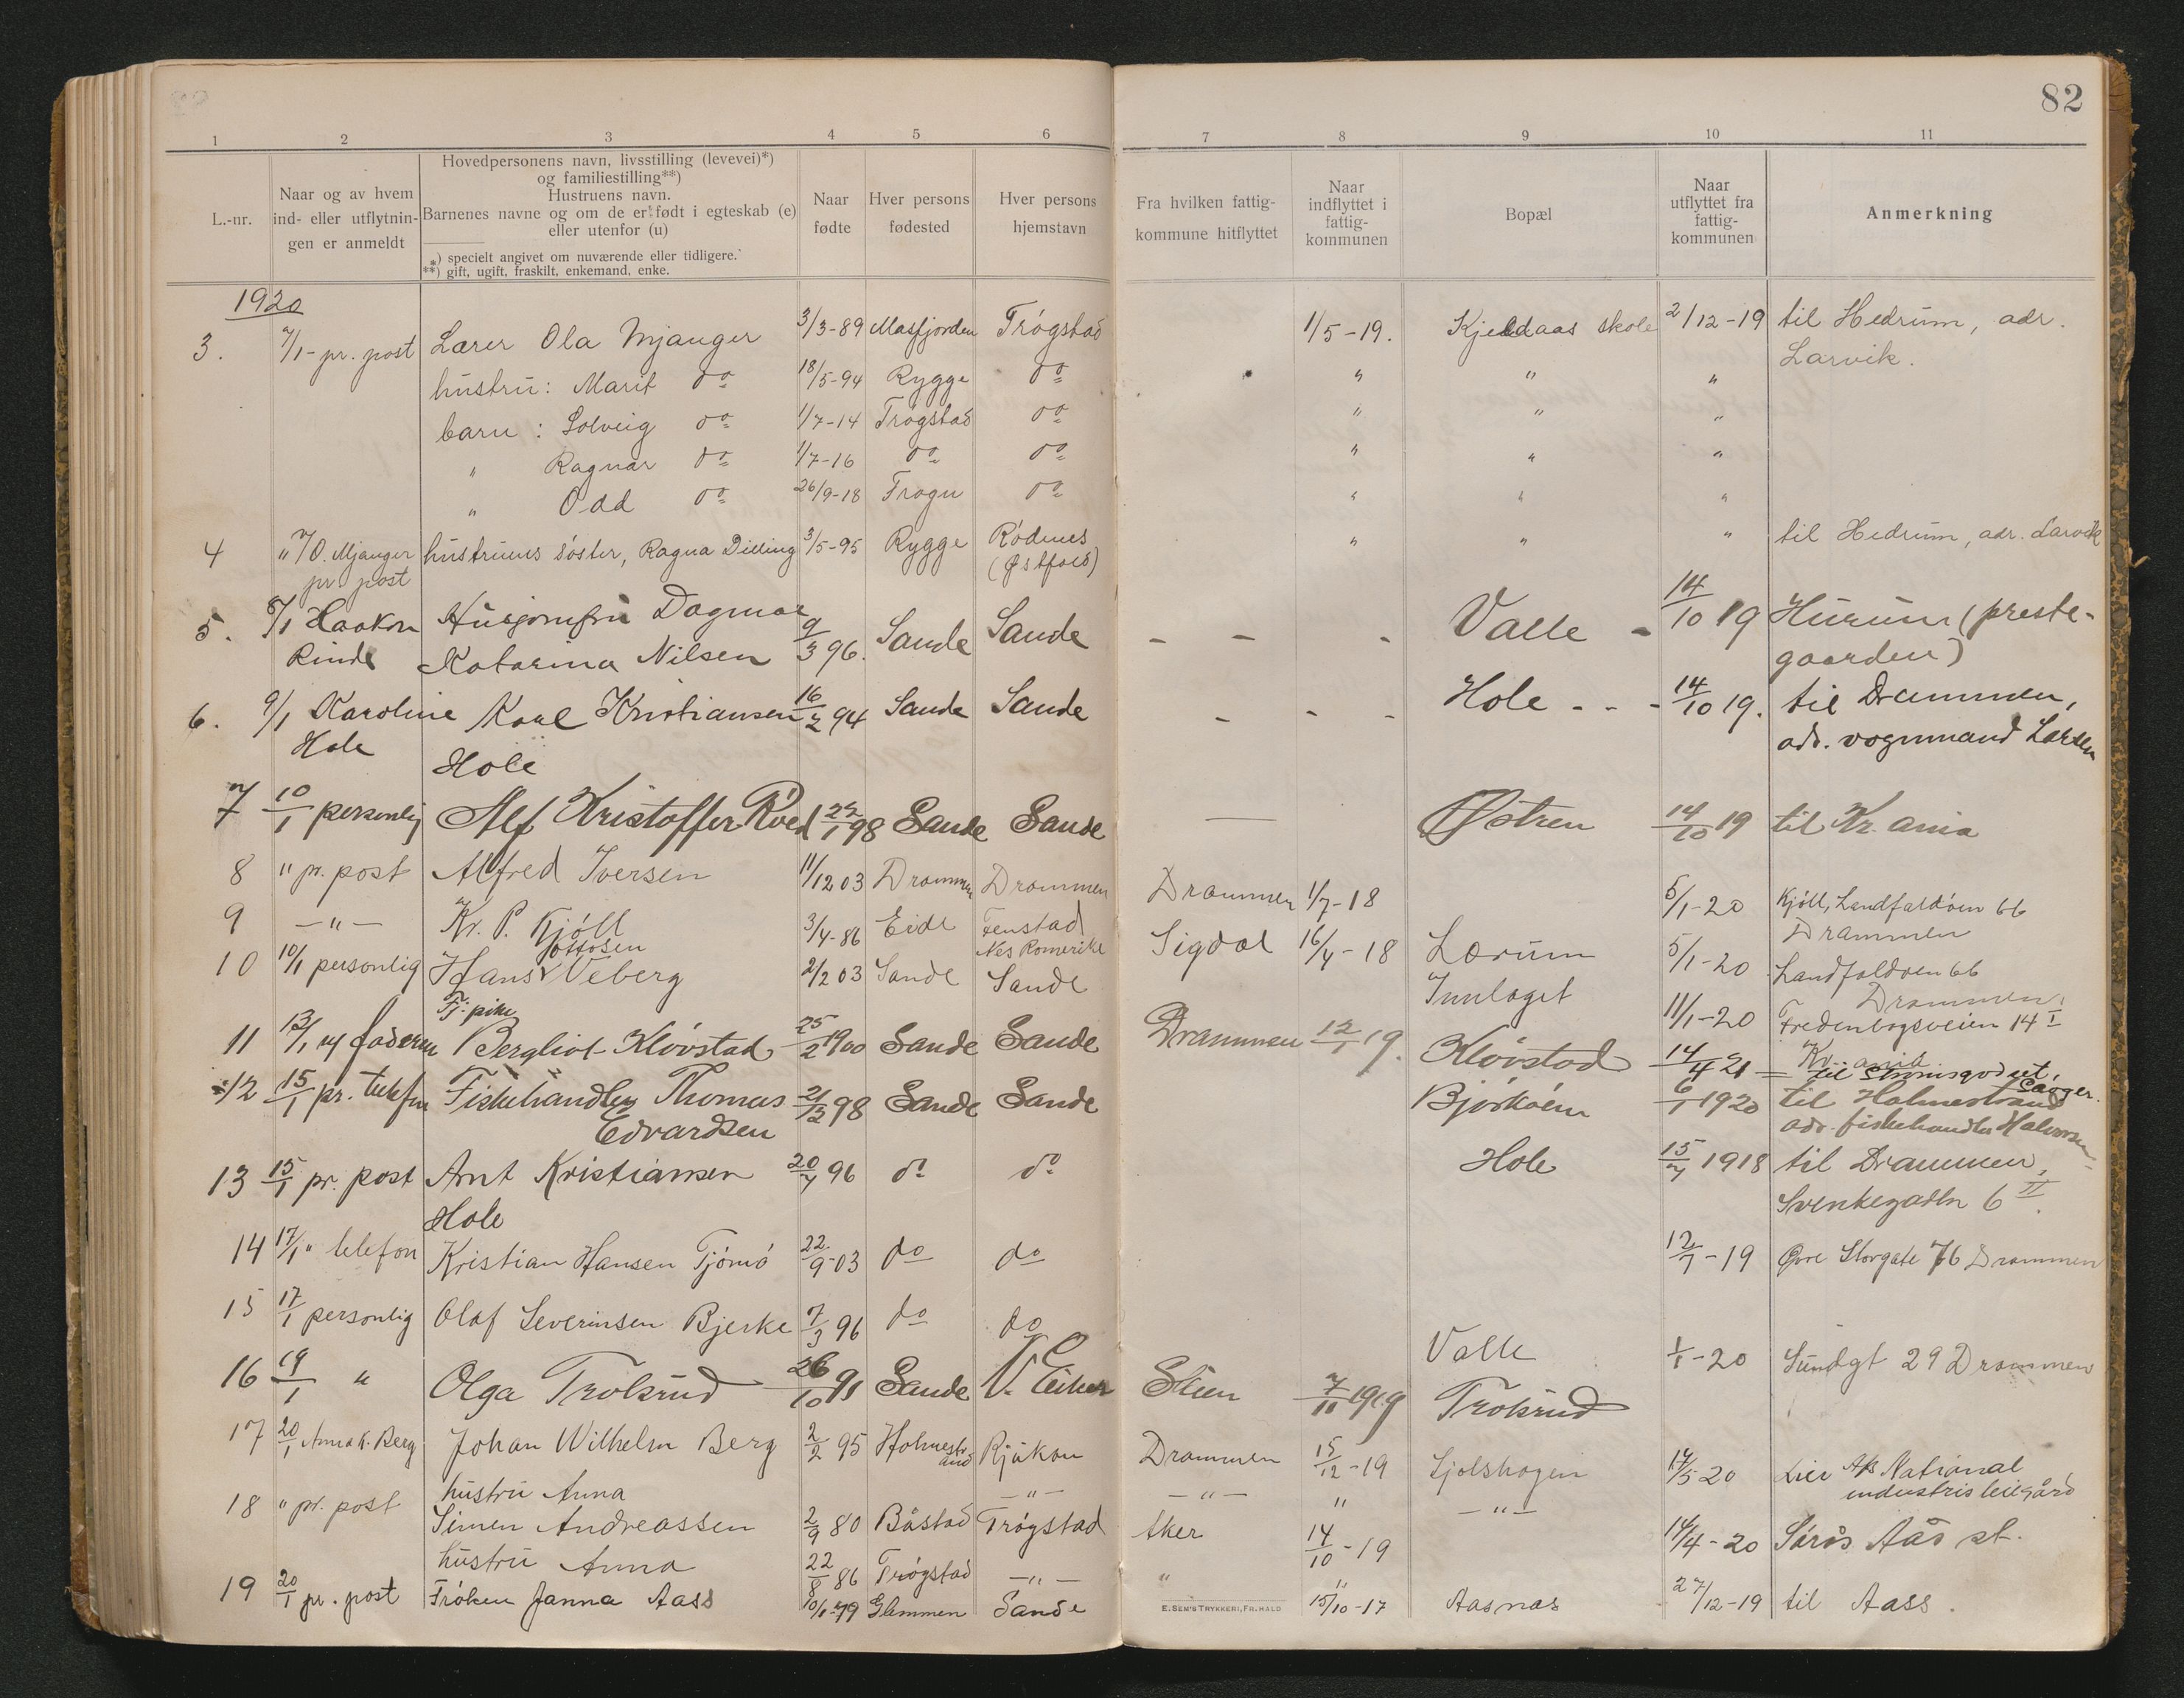 82
1 2 3 4 5 6 7 8 9 10 11
L.-nr.
Naar og av hvem
ind- eller utflytnin-
gen er anmeldt
Hovedpersonens navn, livsstilling (levevei)*)
og familiestilling**)
Hustruens navn.
Barnenes navne og om de er født i egteskab (e)
eller utenfor (u)
*) specielt angivet om nuværende eller tidligere.
**) gift, ugift, fraskilt, enkemand, enke.
Naar
fødte
Hver persons
fødested
Hver persons
hjemstavn
Fra hvilken fattig-
kommune hitflyttet
Naar
indflyttet i
fattig-
kommunen
Bopæl
Naar
utflyttet fra
fattig-
kommunen
Anmerkning
1920
3. 7/1 - pr. post Lærer Ola Mjanger 3/3-89 Masfjorden Trógstad 1/5-19. Kjeldaas skole 2/12-19 til Hedrum, adr.
Larvik.
hustru: Marit do 18/5-94 Rygge do " " "
barn : Solveig do 1/7-14 Trógstad do " " "
" Ragnar do 1/7-16 do do " " "
" Odd do 26/9-18 Trogn do " " "
4 "/ O. Mjanger hustruens sóster, Ragna Dilling 3/5-95 Rygge Ródenes " " " til Hedrum, adr. Larvik
pr post (Østfold)
5. 8/1 Haakon Husjomfru Dagmar 9/3 96. Sande Sande - - - Valle - 14/10 19 Hurum (preste-
Rinde Katarina Nilsen gaarden)
6. 9/1 Karoline Karl Kristiansen 16/2 94 Sande Sande - - - Hole - - - 14/10 19. til Drammen,
Hole Hole adr. vognmand Larsen
7 10/1 personlig Alf Kristoffer Róed 22/1 98 Sande Sande — Østren 14/10 19 til Kr.ania
8 " pr. post Alfred Iversen 11/12 03 Drammen Drammen Drammen 1/7-18 5/1-20 Kjóll, Landfaldóen 66
Drammen
9 —"— Kr. P. Kjóll 3/4-86 Eide Fenstad Sigdal 16/4-18 Lærum 5/1-20 Landfaldoen 66
Nes Romerike Drammen
10 10/1 personlig Hans Ottosen Veberg 2/2 03 Sande Sande Innlaget 11/1-20 Fredenborgsveien 14 I
Tj. pike
11 13/1 ny faderen Bergliot Klóvstad 25/2 1900 Sande Sande Drammen 12/1 19. Klóvstad 14/4 21 — Kr.ania
12 15/1 pr. telefon Fiskehandler Thomas 21/12 98 Sande Sande Bjórkóen 6/1 1920 til Holmestrand
Edvardsen adr. fiskehandler Halvorsen
13 15/1 pr. post Arnt Kristiansen 20/7 96 do do Hole 15/7 1918 til Drammen,
Hole Svenkegaten 6 II.
14 17/1 " telefon Kristian Hansen Tjómó 22/9-03 do do 12/7-19 Øvre Storgate 76 Drammen
15 17/1 personlig Olaf Severinsen Bjerke 7/3 96 do do Valle 1/1-20 Sundgt 29 Drammen
16 19/1 " Olga Trolsrud 26/10 91 Sande N. Eiker Skien 7/11 1919 Trolsrud
17 20/1 Anna K. Berg Johan Wilhelm Berg 2/2 95 Holmestrand Rjukan Drammen 15/12-19 Sjolshagen 14/5 20 Lier A/s National
industris leiegård
hustru Anna —"— —"— " —"—
18 " pr. post Simen Andreassen 2/9 80 Båstad Trógstad Aker 14/10-19 14/4-20 Sórås Aås st.
hustru Anna 22/8 86 Trógstad —"— " "
19 20/1 pr. post Fróken Janna Aass 10/1-79 Glemmen Sande 15/10-17 Aasnas 27/12-19 til Aass.
E. SEM'S TRYKKERI, FR.HALD